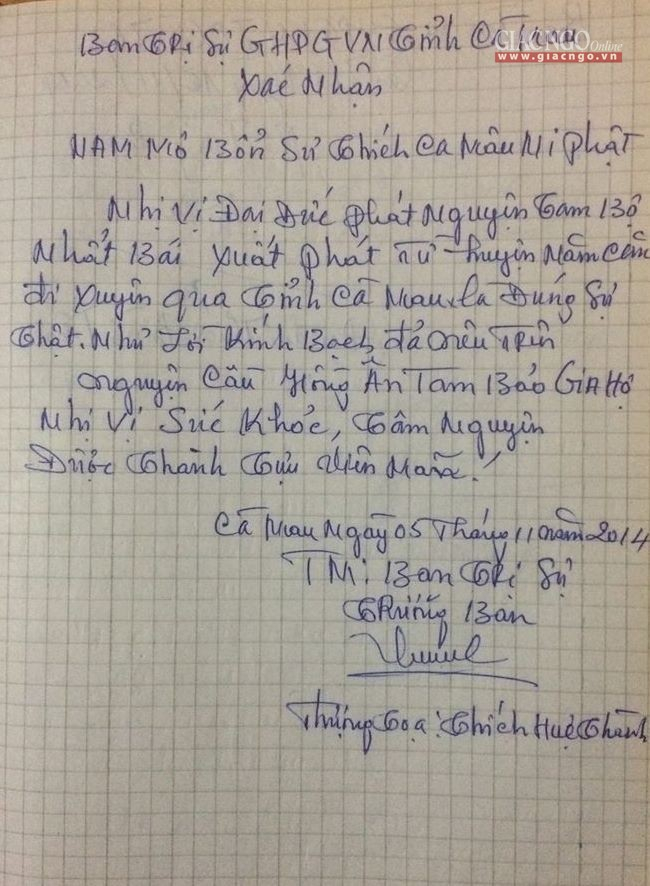 Ban Trị Sự GHPGVN Tỉnh Cà Mau
GIACNGO Online
www.giacngo.vn
Xác Nhận
NAM MÔ Bổn Sư Thích Ca Mâu Ni Phật
Nhị Vị Đại Đức Phát Nguyện Tam Bộ
Nhất Bái xuất phát từ huyện Năm Căn
đi xuyên qua Tỉnh Cà Mau, là Đúng Sự
Thật. Như Lời Kính Bạch đã nêu trên
Nguyện Cầu Hồng Ân Tam Bảo Gia Hộ
Nhị Vị Sức Khỏe, Tâm Nguyện
Được Thành Tựu Viên Mãn!
Cà Mau Ngày 05 Tháng 11 năm 2014
TM: Ban Trị Sự
Trưởng Ban
Thượng Tọa: Thích Huệ Thành